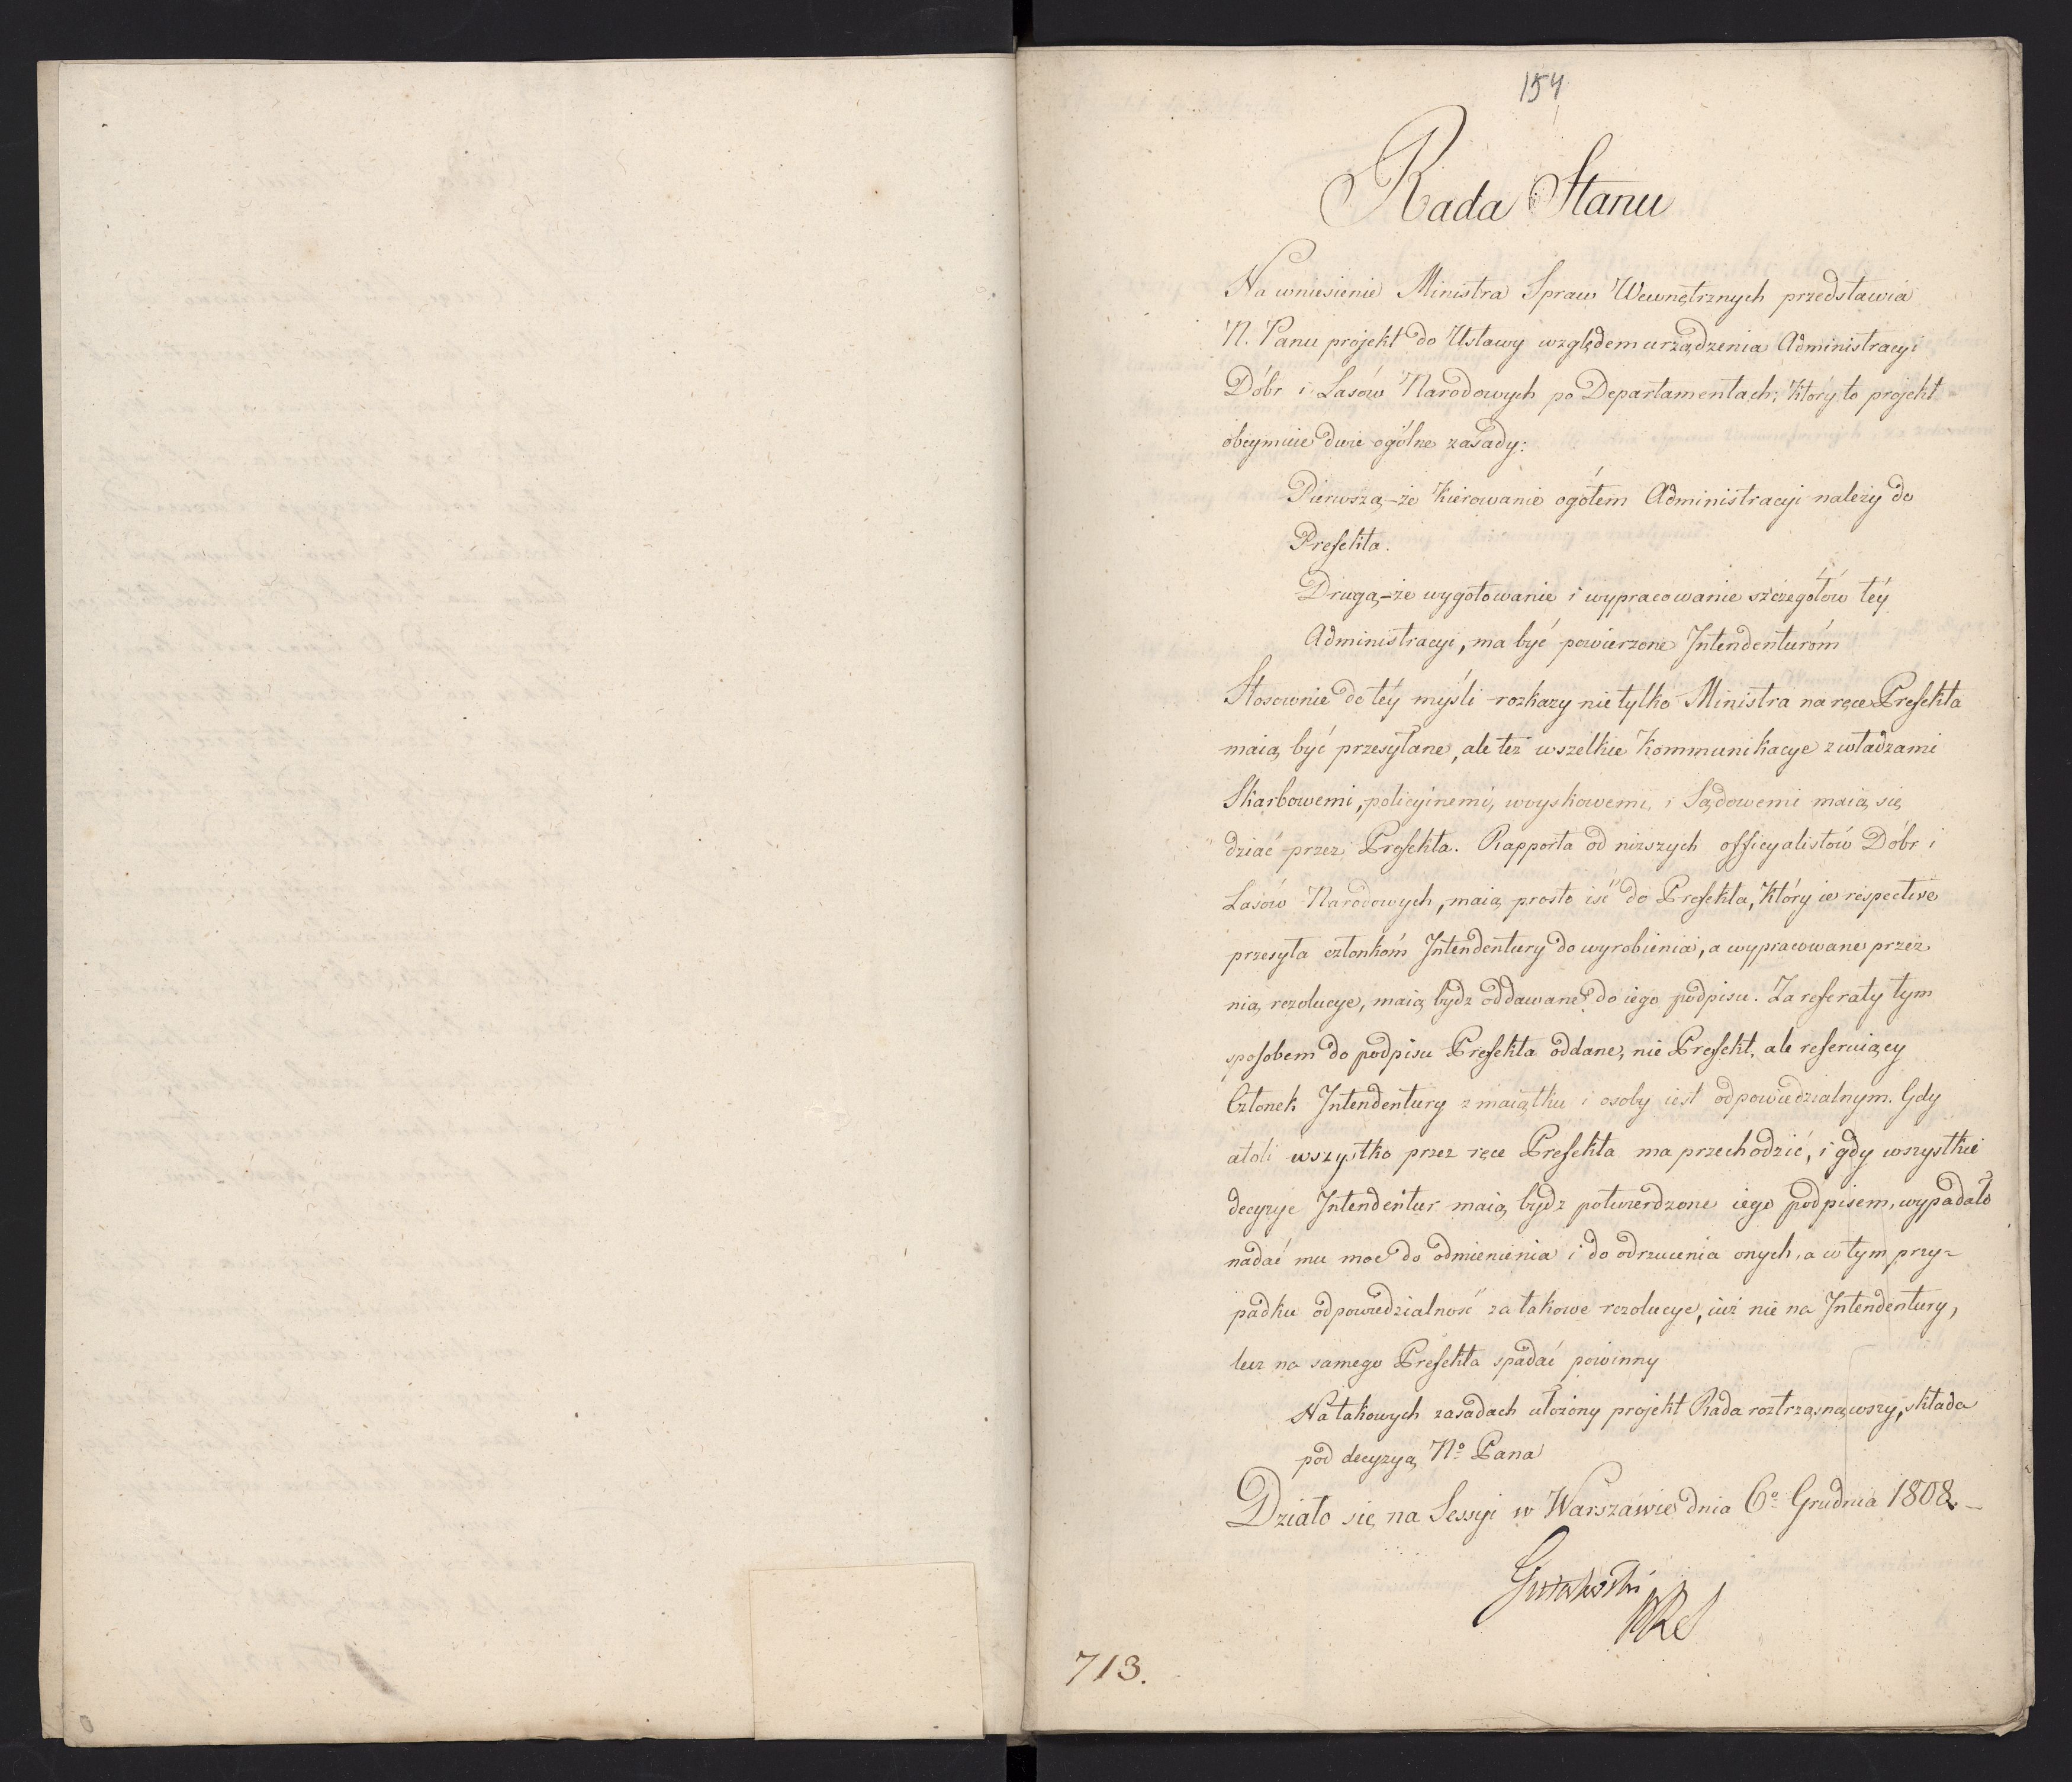 154
Rada Stanu
Na wniesienie Ministra Spraw Wewnętrznych przedstawia
N. Panu projekt do Ustawy względem urządzenia Administracyi
Dóbr i Lasów Narodowych po Departamentach; Który to projekt
obeymuie dwie ogólne zasady:
Pierwszą,-że Kierowanie ogółem Administracyi należy do
Prefekta.
Drugą,-że wygotowanie i wypracowanie szczegółów téy
Administracyi, ma być powierzone Intendenturóm
Stosownie do téy myśli rozkazy nie tylko Ministra na ręce Prefekta
maią być przesyłane, ale też wszelkie Kommunikacye z władzami
Skarbowemi, policyinemi, woyskowemi, i Sądowemi maią się
dziać przez Prefekta. Rapporta od niższych officyalistów Dóbr i
Lasów Narodowych, maią prosto iść do Prefekta, Który ie respective
przesyła członkóm Intendentury do wyrobienia, a wypracowane przez
nią rezolucye, maią bydź oddawane do iego podpisu. Za referaty tym
sposobem do podpisu Prefekta oddane, nie Prefekt, ale referuiący
Członek Intendentury z maiątku i osoby iest odpowiedzialnym. Gdy
atoli wszystko przez ręce Prefekta ma przechodzić, i gdy wszystkie
decyzye Intendentur maią bydź potwierdzone iego podpisem, wypadało
nadać mu moc do odmienienia i do odrzucenia onych, a w tym przy=
padku odpowiedzialność za takowe rezolucye, iuż nie na Intendentury,
lecz na samego Prefekta spadać powinny
Na takowych zasadach ułożony projekt Rada roztrząsnąwszy, składa
pod decyzyą No Pana
Działo się na Sessyi w Warszawie dnia 6o Grudnia 1808.
Gutakowski
PRS
713.